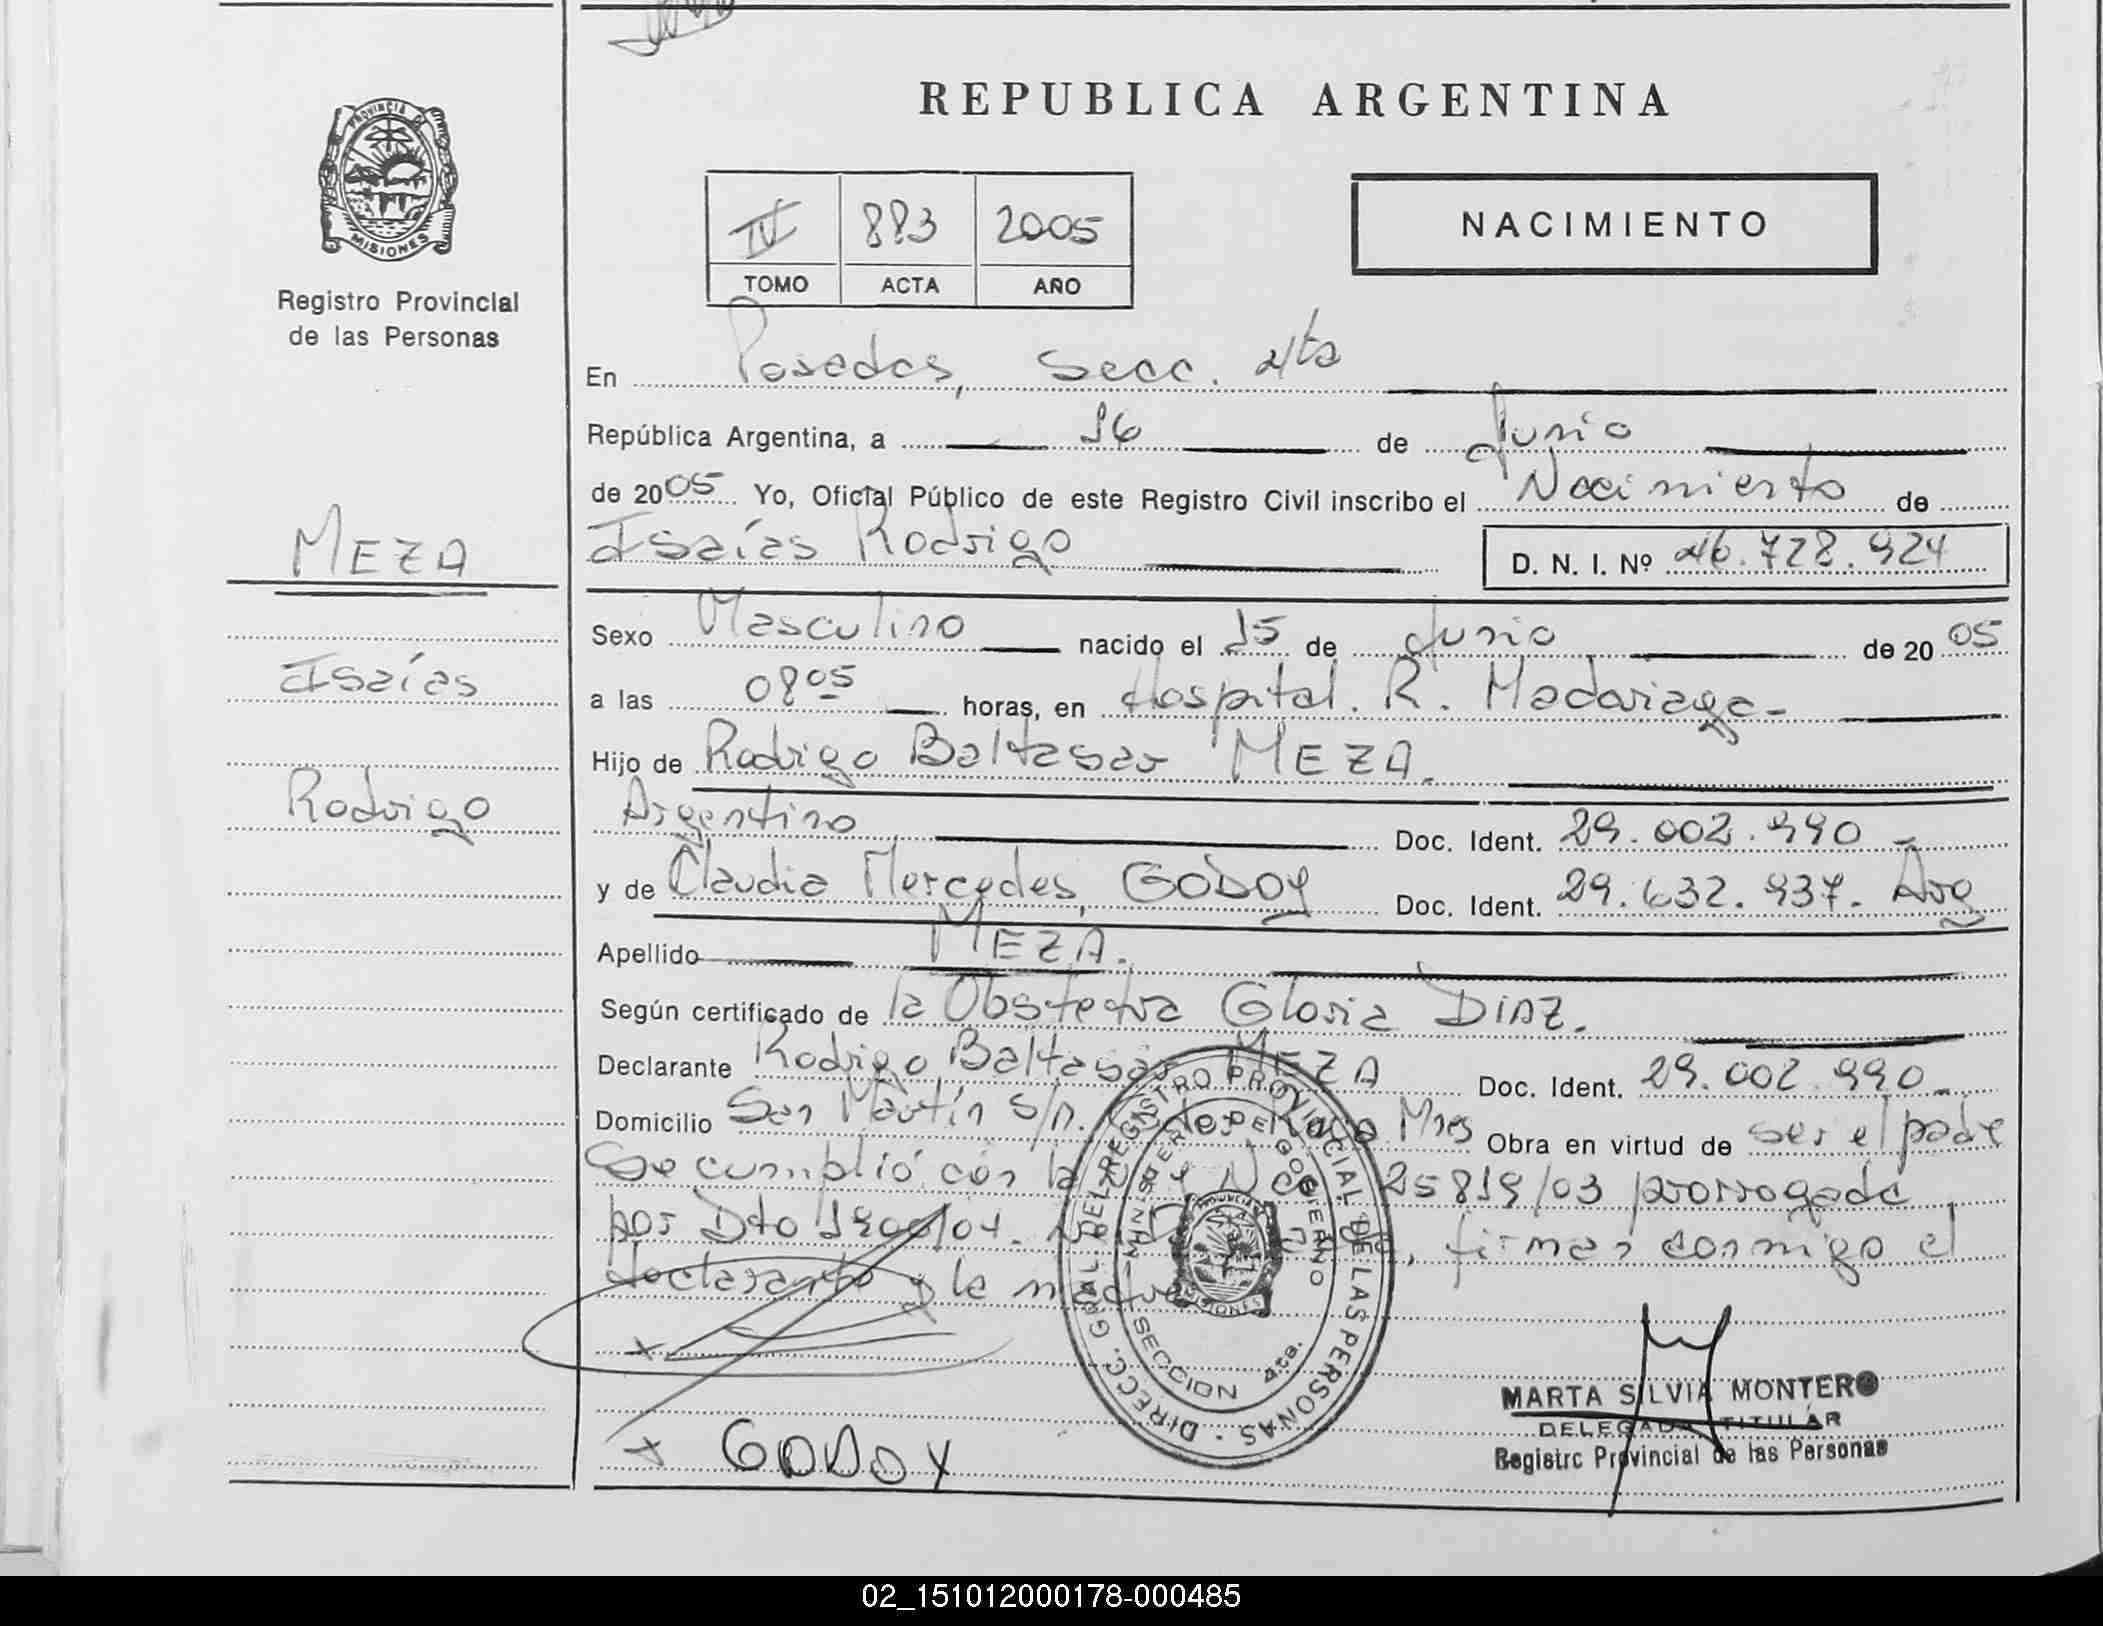 REPUBLICA ARGENTINA
PROVINCIA DE
MISIONES
Registro Provincial
de las Personas
IV 883 2005
TOMO ACTA AÑO
NACIMIENTO
En Posadas, Secc. 4ta
República Argentina, a 16 de Junio
de 2005 Yo, Oficial Público de este Registro Civil inscribo el Nacimiento de
MEZA
Isaías Rodrigo D. N. I. Nº 46.728.924
Sexo Masculino nacido el 15 de Junio de 2005
Isaías
a las 08 05 horas, en Hospital. R. Madariaga-
Hijo de Rodrigo Baltasar MEZA.
Rodrigo
Argentino Doc. Ident. 29.002.990-
y de Claudia Mercedes, GODOY Doc. Ident. 29.632.937. Arg
Apellido MEZA.
Según certificado de la Obstetra Gloria DIAZ.
Declarante Rodrigo Baltasar MEZA Doc. Ident. 29.002.990-
Domicilio San Martín s/n. Mnes Obra en virtud de ser el padre
Se cumplió con la Ley Nac. 25819/03 prorrogada
por Dto 1900/04. firman conmigo el
declarante y la madre
DIRECC. GRAL. DEL REGISTRO PROVINCIAL DE LAS PERSONAS.
MINISTERIO DE GOBIERNO
PROVINCIA
MISIONES
SECCION 4ta.
x
x GODOY
MARTA SILVIA MONTERO
DELEGADA TITULAR
Registro Provincial de las Personas
02_151012000178-000485